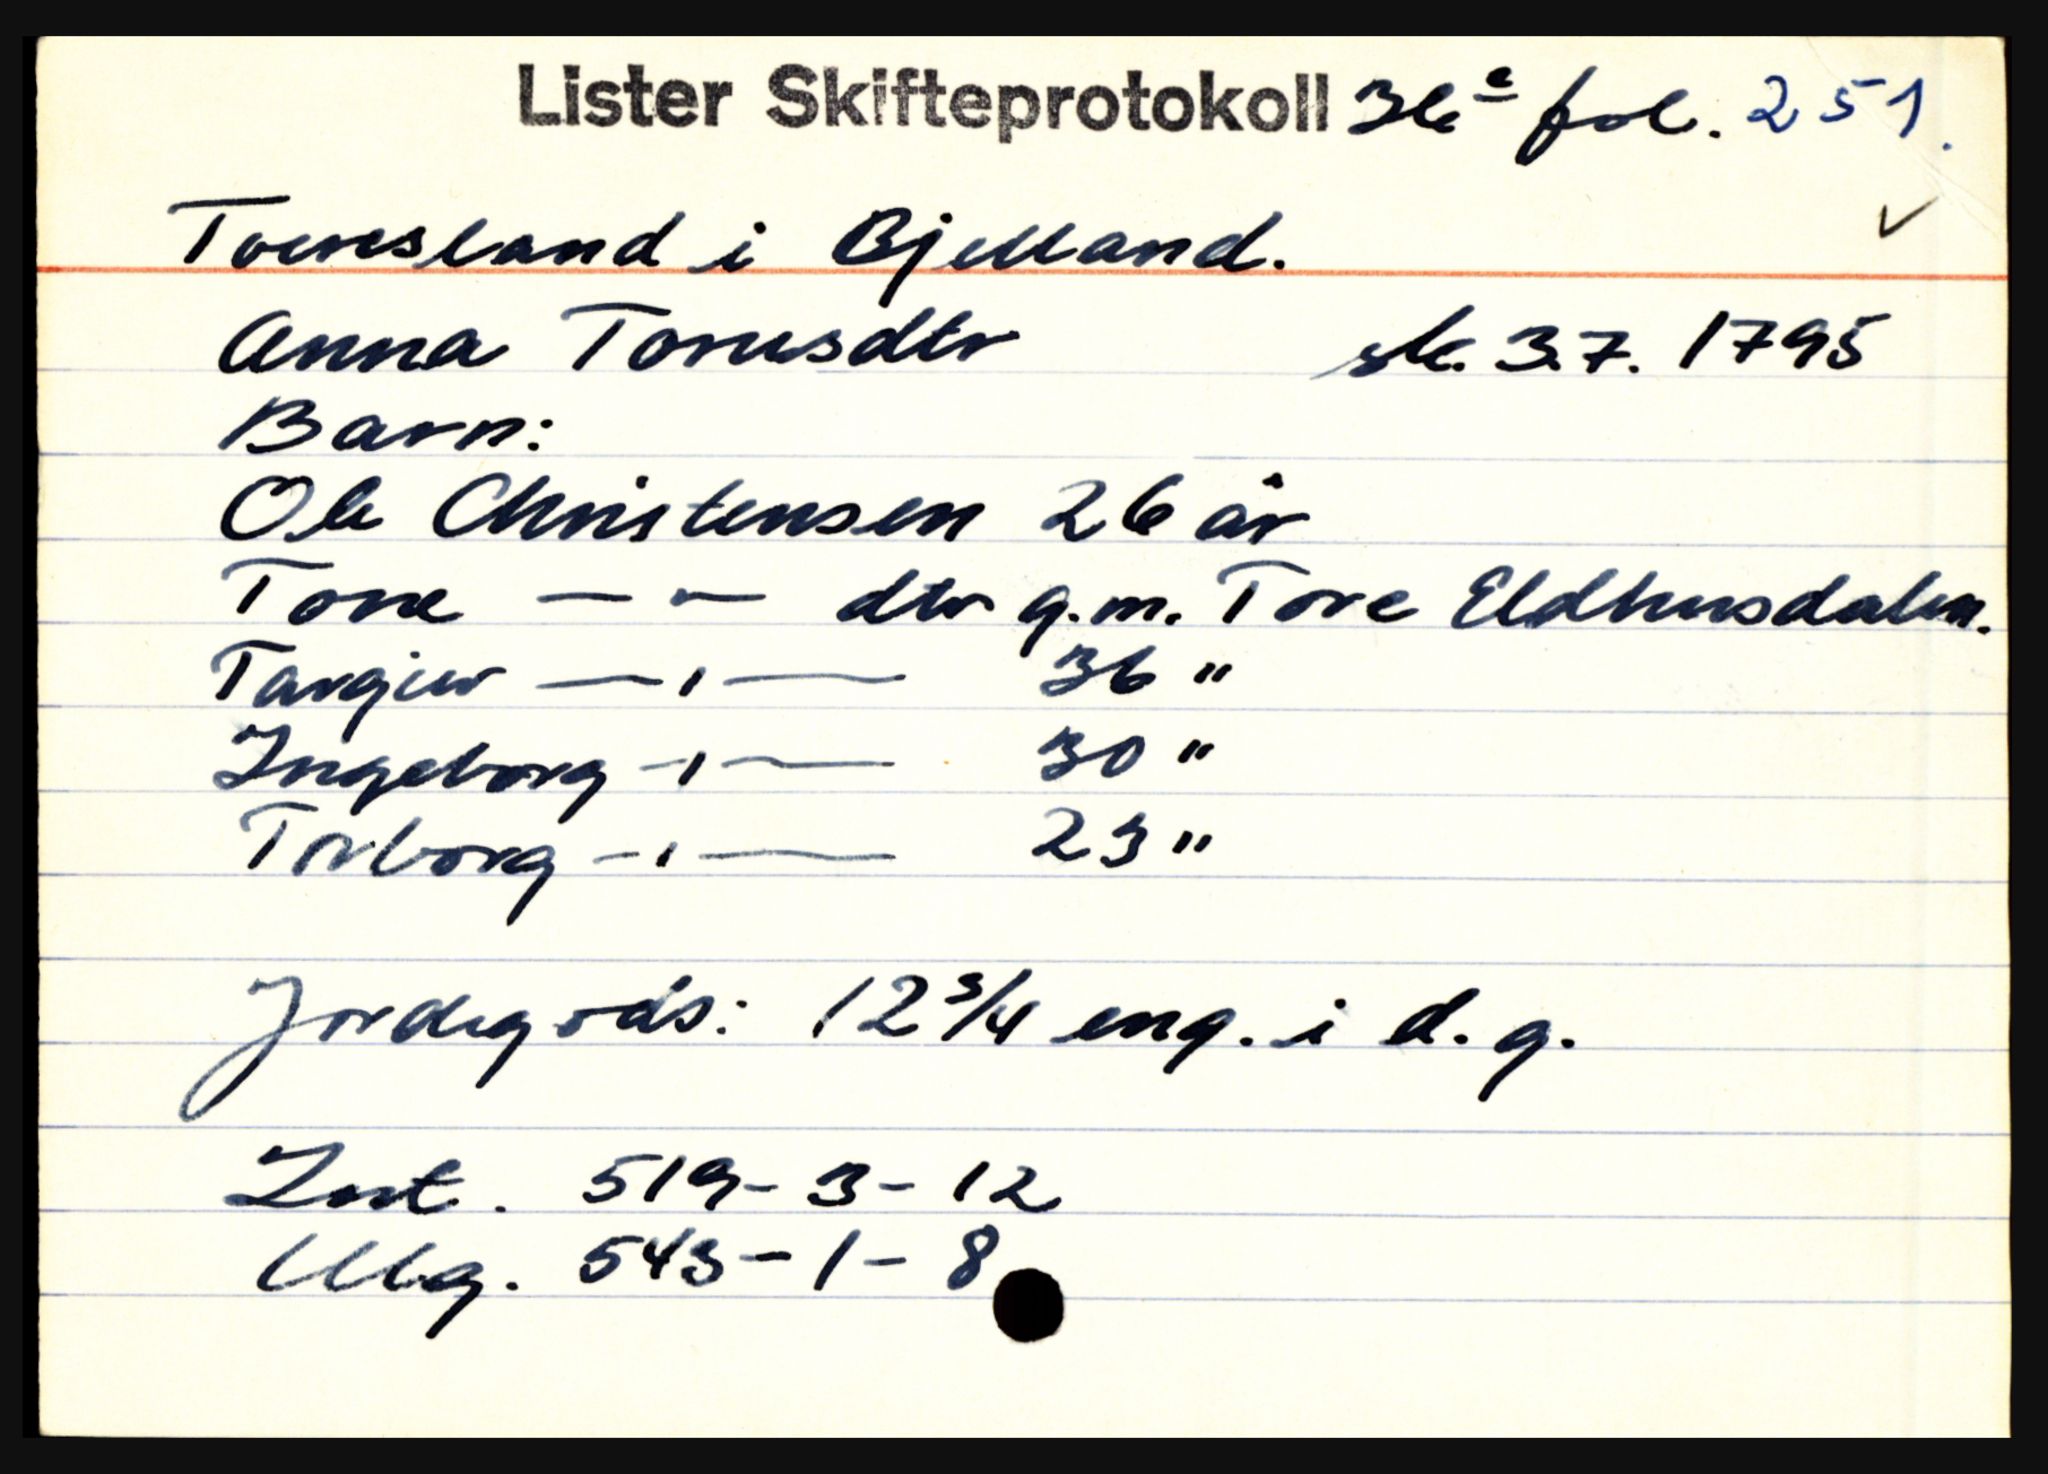 Lister Skifteprotokoll 36 e fol. 251.
Tornesland i Bjelland.
Anna Torusdtr sk. 3.7. 1795
Barn:
Ole Christensen 26 år
Tone — " — dtr g.m. Tore Eldhusdalen.
Targier — " — 36 "
Ingeborg — " — 30 "
Torborg — " — 23 "
Jordegods: 12 3/4 eng. i d. g.
Int. 519 - 3 - 12
Utg. 543 - 1 - 8